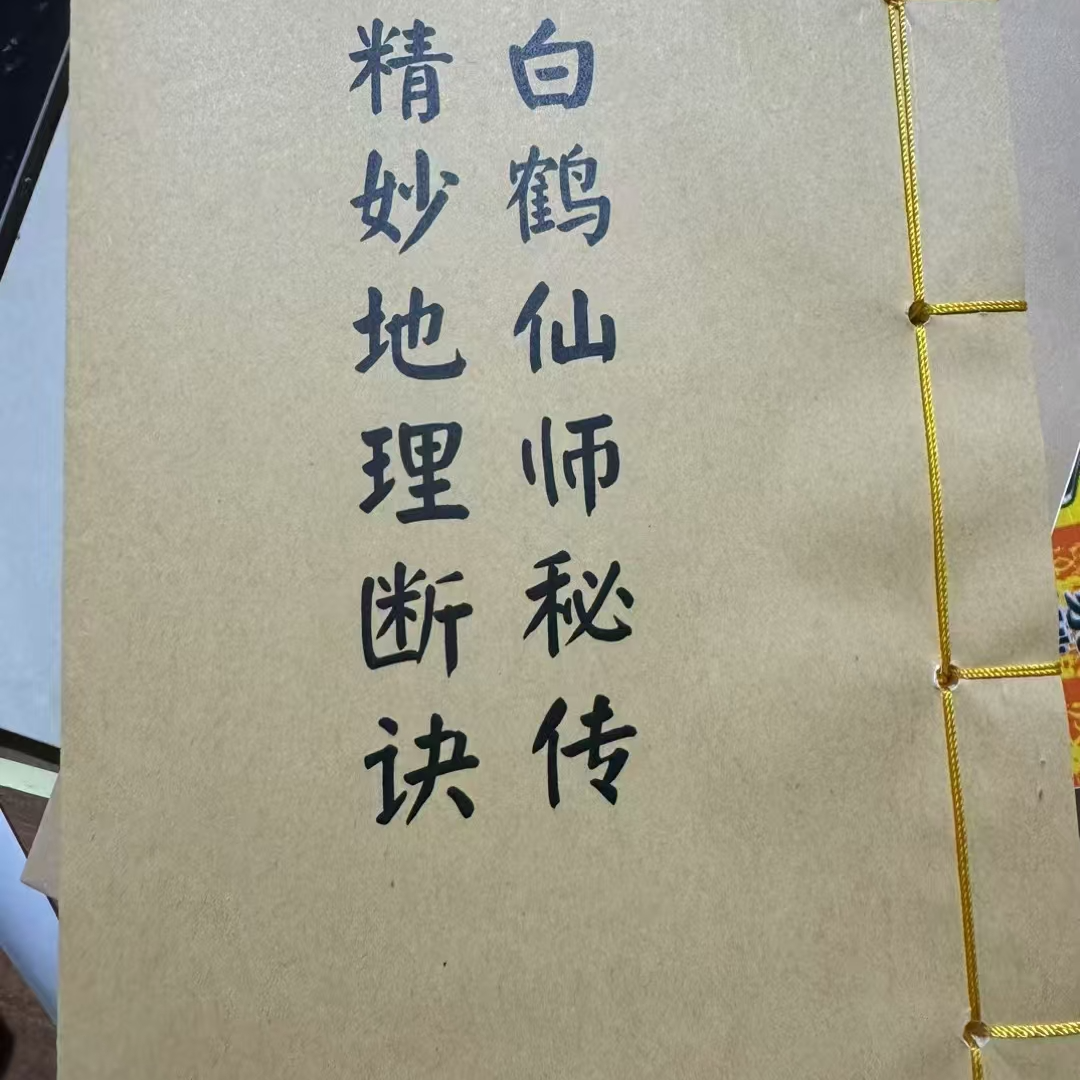 白鹤仙师秘传
精妙地理断诀